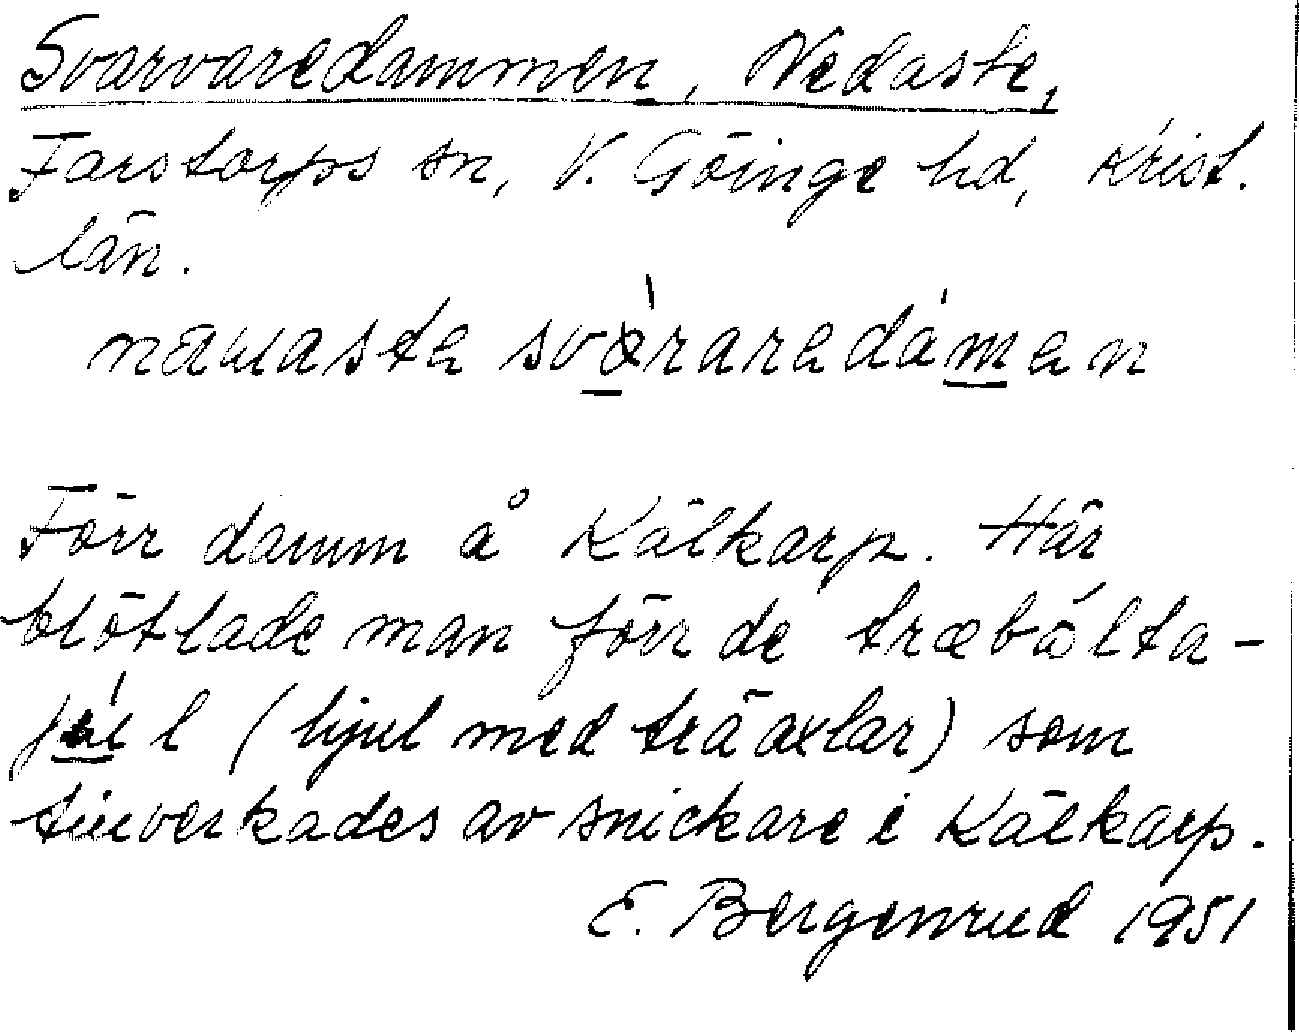 Svarvaredammen, Nedaste,
Farstorps sn, V. Göinge hd, Krist.
län.
svǽraredámen
Förr damm å Kälkarp. Här
blötlade man förr de træbólta-
júl (hjul med träaxlar) som
tillverkades av snickare i Kälkarp.
E. Bergenrud 1951